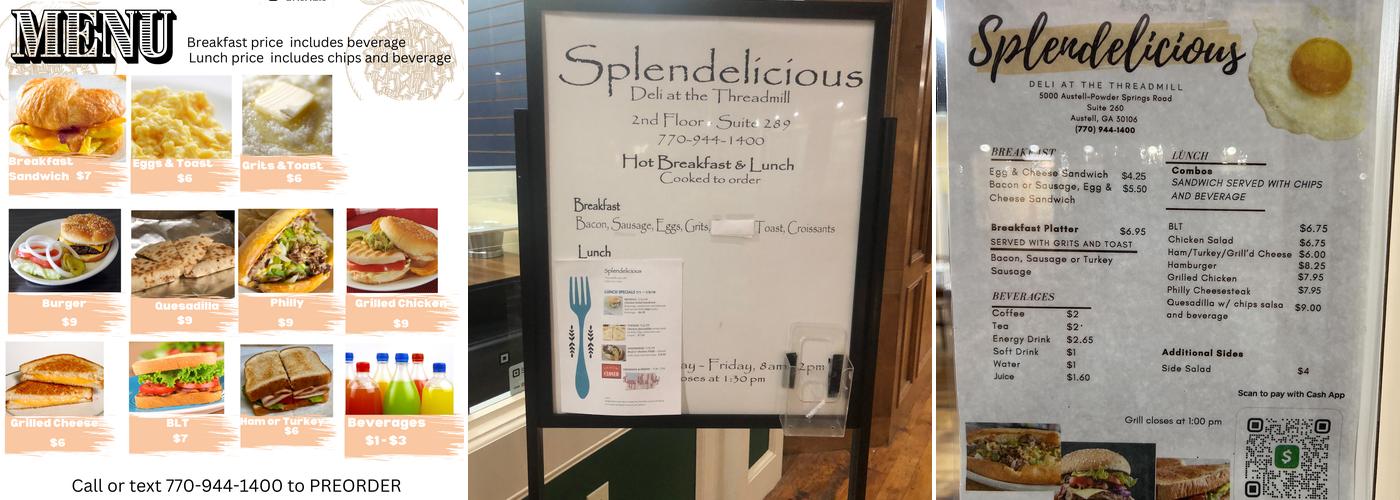 MENU
Breakfast price includes beverage
Lunch price includes chips and beverage
Breakfast
Sandwich $7
Eggs & Toast
$6
Grits & Toast
$6
Burger
$9
Quesadilla
$9
Philly
$9
Grilled Chicken
$9
Grilled Cheese
$6
BLT
$7
Ham or Turkey
$6
Beverages
$1- $3
Call or text 770-944-1400 to PREORDER
Splendelicious
Deli at the Threadmill
2nd Floor - Suite 289
770-944-1400
Hot Breakfast & Lunch
Cooked to order
Breakfast
Bacon, Sausage, Eggs, Grits, Toast, Croissants
Lunch
Splendelicious
LUNCH SPECIALS
ay - Friday, 8am - 2pm
oses at 1:30 pm
Splendelicious
DELI AT THE THREADMILL
5000 Austell-Powder Springs Road
Suite 260
Austell, GA 30106
(770) 944-1400
BREAKFAST
Egg & Cheese Sandwich $4.25
Bacon or Sausage, Egg & $5.50
Cheese Sandwich
Breakfast Platter $6.95
SERVED WITH GRITS AND TOAST
Bacon, Sausage or Turkey
Sausage
BEVERAGES
Coffee $2
Tea $2
Energy Drink $2.65
Soft Drink $1
Water $1
Juice $1.60
LUNCH
Combos
SANDWICH SERVED WITH CHIPS
AND BEVERAGE
BLT $6.75
Chicken Salad $6.75
Ham/Turkey/Grill'd Cheese $6.00
Hamburger $8.25
Grilled Chicken $7.95
Philly Cheesesteak $7.95
Quesadilla w/ chips salsa $9.00
and beverage
Additional Sides
Side Salad $4
Scan to pay with Cash App
Grill closes at 1:00 pm
$